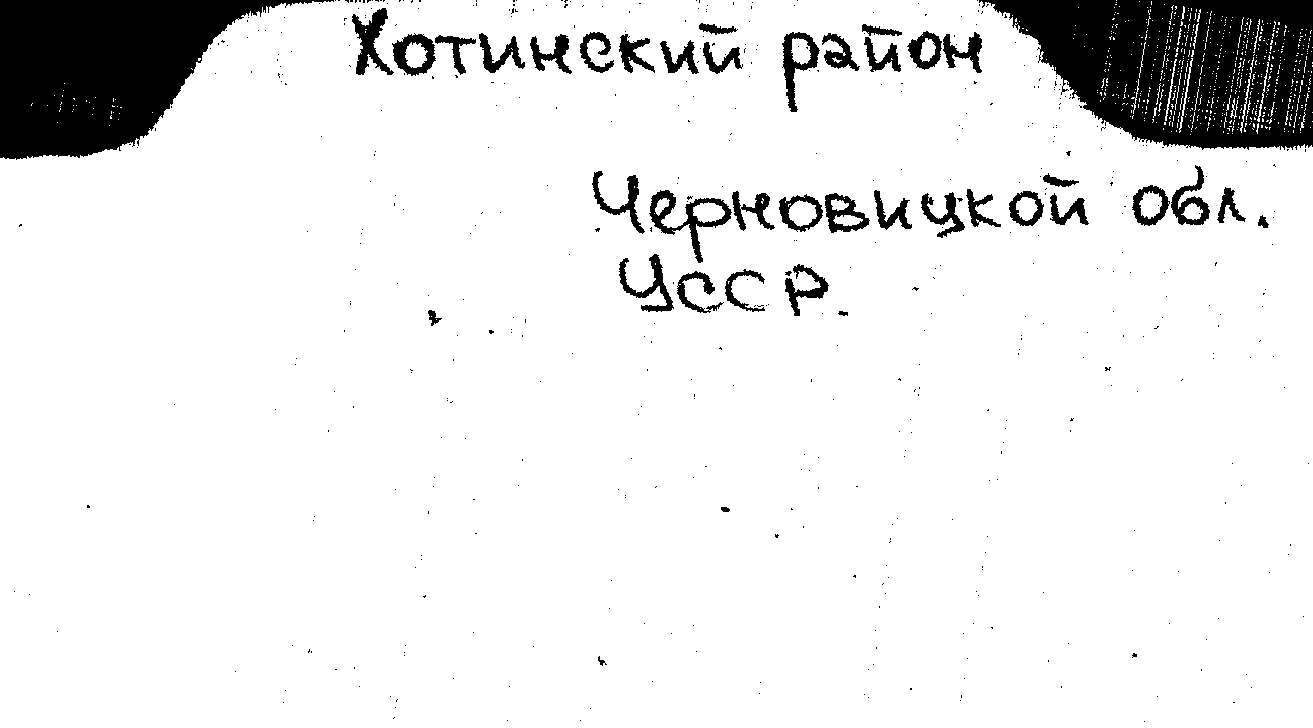 Хотинский район
Черновицкой обл.
УССР.